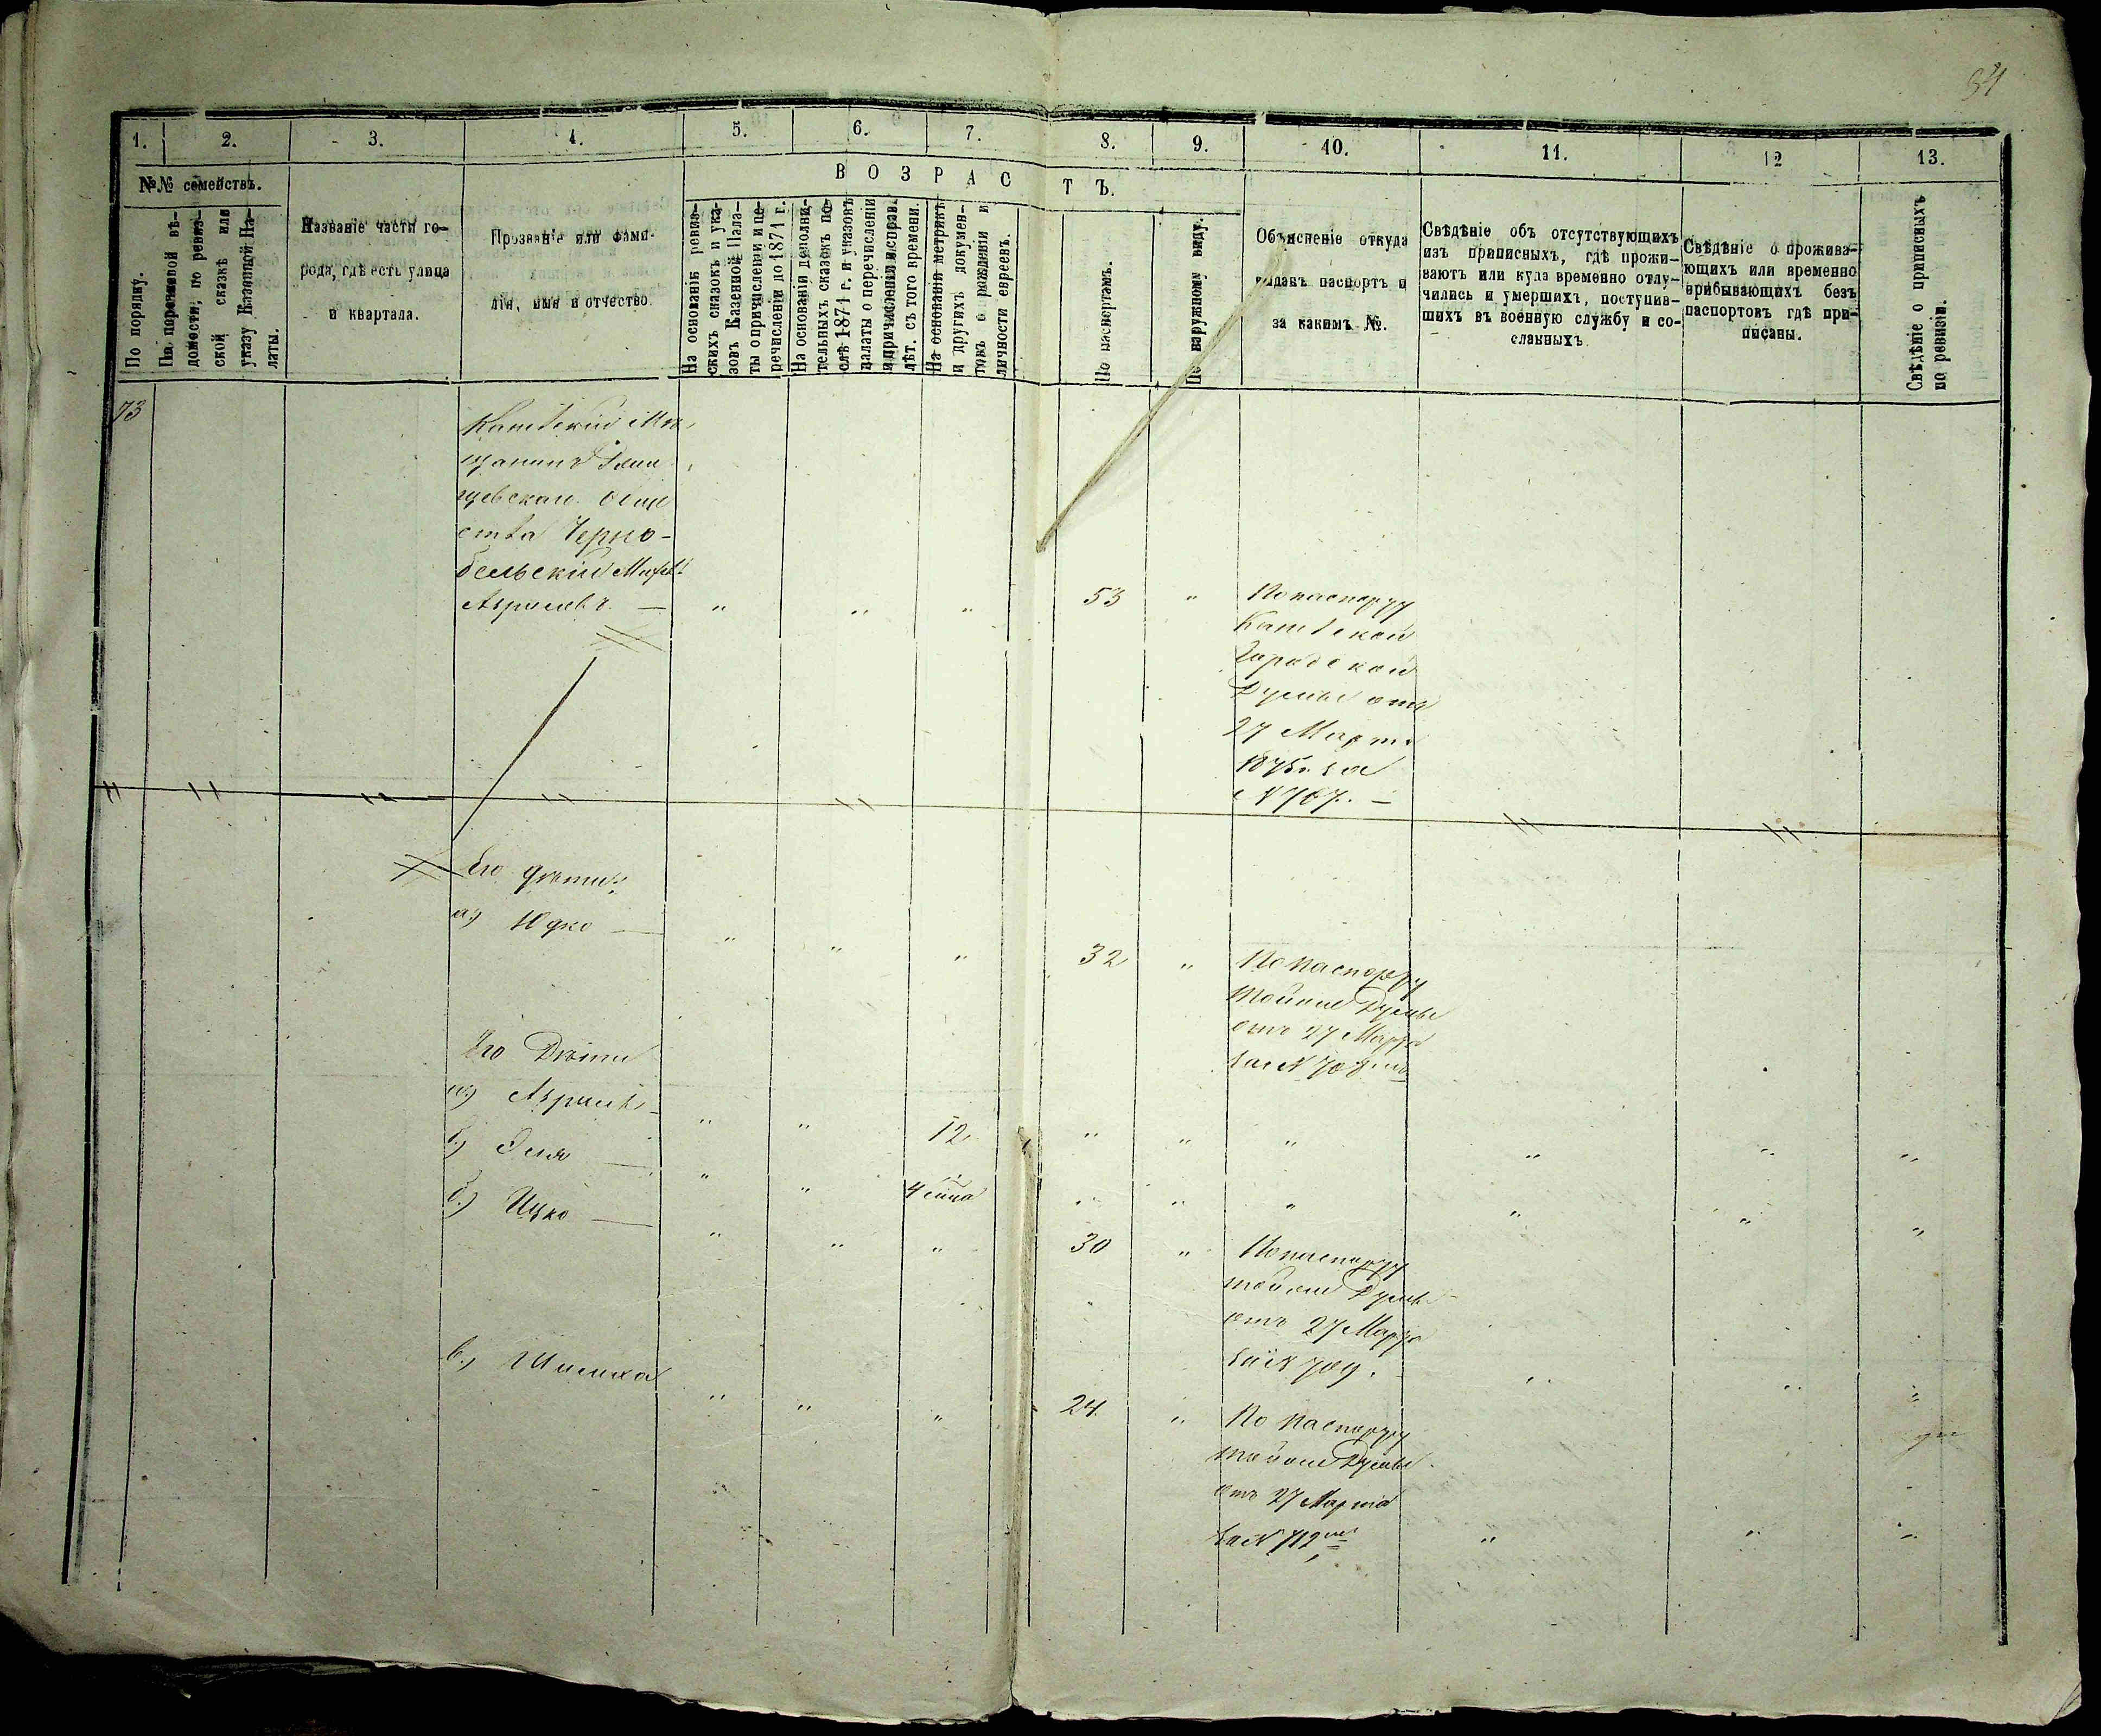 34
1. 2. 3. 4. 5. 6. 7. 8. 9. 10. 11. 12 13.
№№ семействъ.
По порядку.
По перечневой вѣ-
домости, по ревиз-
ской сказкѣ или
указу Казенной Па-
латы.
Названіе части го-
рода, гдѣ есть улица
и квартала.
Прозваніе или фами-
лія, имя и отчество.
ВОЗРАСТЪ.
На основаніи ревиз-
скихъ сказокъ и ука-
зовъ Казенной Пала-
ты о причисленіи и пе-
речисленіи до 1871 г.
На основаніи дополни-
тельныхъ сказокъ по-
слѣ 1871 г. и указовъ
палаты о перечисленіи
и причисленіи исправ.
лѣт. съ того времени.
На основаніи метрикъ
и другихъ докумен-
товъ о рожденіи и
личности евреевъ.
По паспортамъ.
По наружному виду.
Объясненіе откуда
выданъ паспортъ и
за какимъ №.
Свѣдѣніе объ отсутствующихъ
изъ приписныхъ, гдѣ прожи-
ваютъ или куда временно отлу-
чились и умершихъ, поступив-
шихъ въ военную службу и со-
сланныхъ
Свѣдѣніе о прожива-
ющихъ или временно
прибывающихъ безъ
паспортовъ гдѣ при-
писаны.
Свѣдѣніе о приписныхъ
по ревизіи.
73
Мѣ-
щанинъ
Черно-
бельскій
" " " 53 " По паспорту
Городской
Думы отъ
27 Марта
1875 г. за
№ 707. —
Его дѣти:
а) Юдко — " " " 32 " По паспорту
тойже Думы
отъ 27 Марта
за № 708
Его Дѣти
а) " " 12 " " " " " "
б) — " " 4 " " " " " "
б.) Ицко — " " " 30 " По паспорту
тойже Думы
отъ 27 Марта
за № 709.
в.) " " " 24. " По паспорту
тойже Думы
отъ 27 Марта
за № 712 " " "